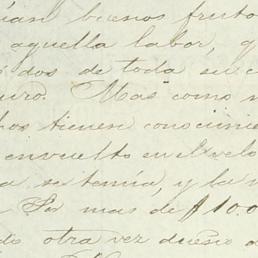 buenos fruto
aquella labor, q
dos de toda su c
uro. Mas como n
hos tienen conocimie
envuelto en el velo
a, se temía, y la n
Por mas de $10.0
do otra vez dueño a